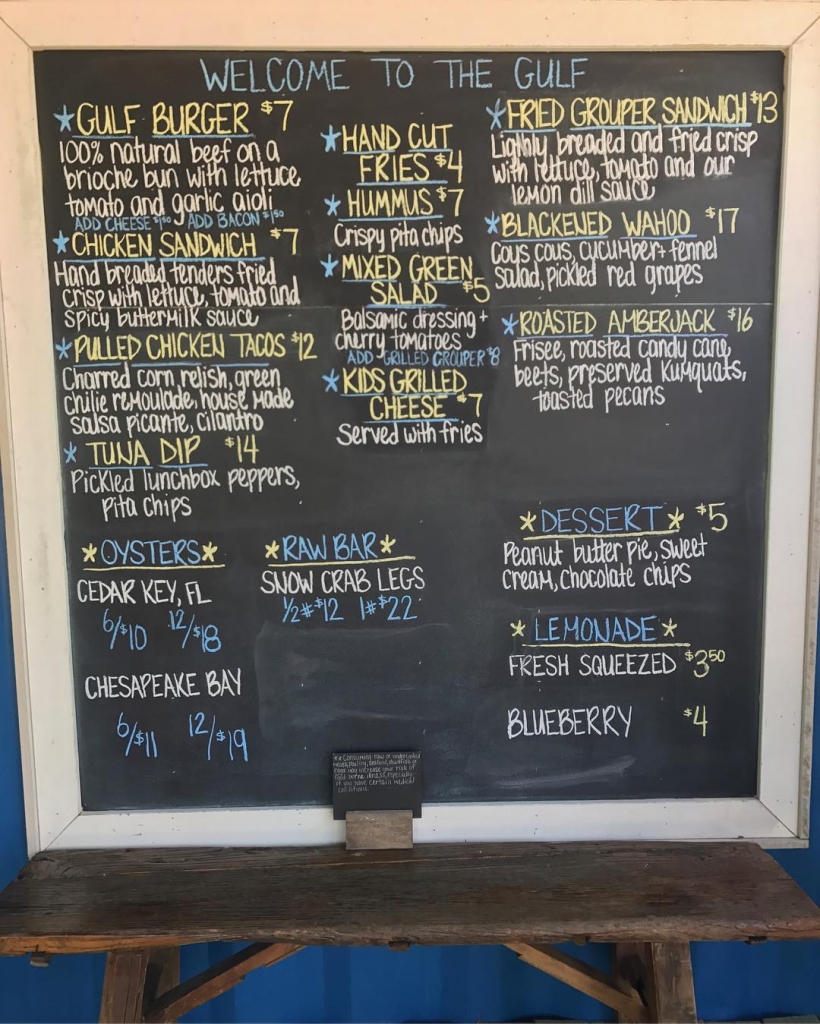 WELCOME TO THE GULF
★GULF BURGER $7
100% natural beef on a
brioche bun with lettuce
tomato and garlic aioli
ADD CHEESE $1.50 ADD BACON $1.50
★CHICKEN SANDWICH $7
Hand breaded tenders fried
crisp with lettuce, tomato and
spicy buttermilk sauce
★PULLED CHICKEN TACOS $12
Charred corn relish, green
chilie remoulade, house made
salsa picante, cilantro
★ TUNA DIP $14
Pickled lunchbox peppers,
pita chips
★HAND CUT
FRIES $4
★ HUMMUS $7
Crispy pita chips
★MIXED GREEN
SALAD $5
Balsamic dressing +
cherry tomatoes
ADD GRILLED GROUPER $8
★KIDS GRILLED
CHEESE $7
Served with fries
★FRIED GROUPER SANDWICH $13
Lightly breaded and fried crisp
with lettuce, tomato and our
lemon dill sauce
★BLACKENED WAHOO $17
Cous cous, cucumber + fennel
salad, pickled red grapes
★ROASTED AMBERJACK $16
Frisee, roasted candy cane
beets, preserved kumquats,
toasted pecans
★OYSTERS★
CEDAR KEY, FL
6/$10 12/$18
CHESAPEAKE BAY
6/$11 12/$19
★RAW BAR★
SNOW CRAB LEGS
1/2#$12 1#$22
★DESSERT★ $5
Peanut butter pie, sweet
cream, chocolate chips
★ LEMONADE ★
FRESH SQUEEZED $3.50
BLUEBERRY $4
Consuming raw or undercooked
meats, poultry, seafood, shellfish or
eggs may increase your risk of
food borne illness, especially
if you have certain medical